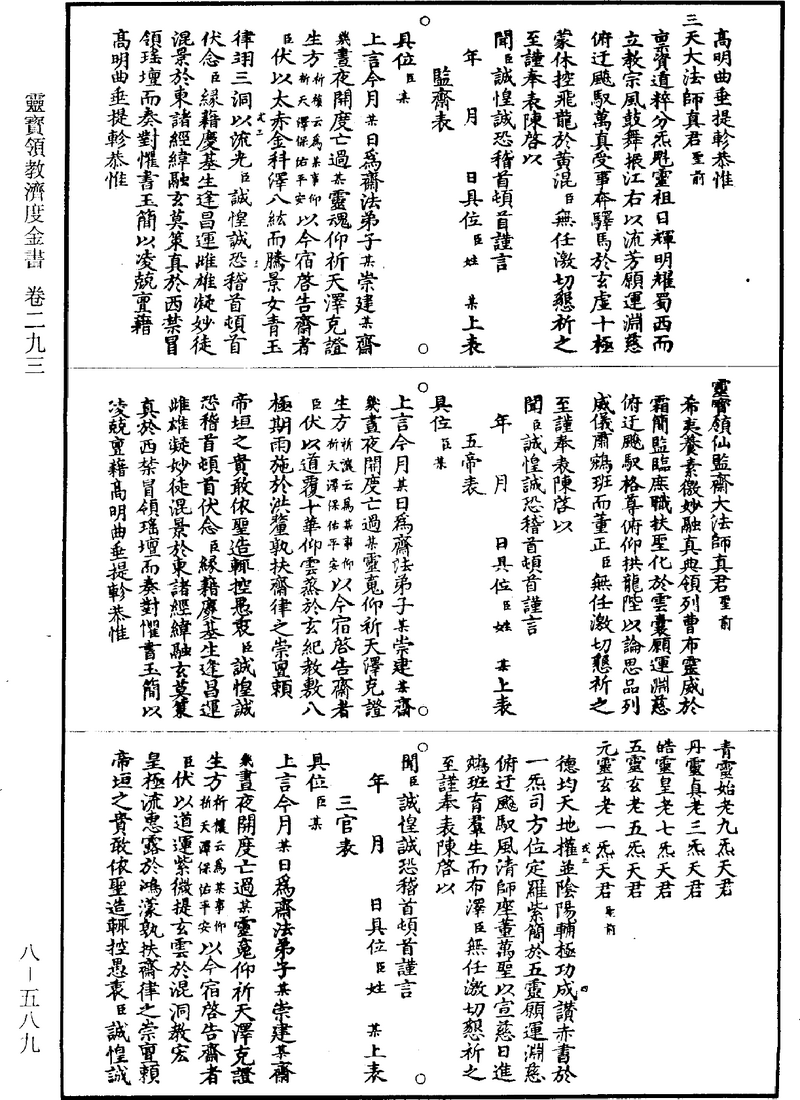 高明曲垂提軫恭惟
三天大法師真君聖前
稟資道粹分炁魁靈祖日輝明耀蜀西而
立教宗風鼓舞振江右以流芳願運淵慈
俯迂飈馭萬真受事奔驛馬於玄虛十極
蒙休控飛龍於黃混臣無任激切懇祈之
至謹奉表陳啓以
聞臣誠惶誠恐稽首頓首謹言
年 月 日具位臣姓 某上表
監齋表
具位臣某
上言今月某日為齋法弟子某崇建某齋
幾晝夜開度亡過某靈魂仰祈天澤克證
生方祈禳云為某事仰祈天澤保佑平安以今宿啓告齋者
臣伏以太赤金科繹八紘而騰景女青玉
律翊三洞以流光臣誠惶誠恐稽首頓首
伏念臣緣藉慶基生逢昌運雌雄凝妙徒
混景於東諸經緯融玄莫策真於西禁冒
領瑤壇而奏對懼書玉簡以凌兢亶藉
高明曲垂提軫恭惟
靈寶領仙監齋大法師真君聖前
希夷養素微妙融真典領列曹布靈威於
霜簡監臨庶職扶聖化於雲囊願運淵慈
俯迂飈馭格尊俯仰拱龍陛以論思品列
威儀肅鵷班而董正臣無任激切懇祈之
至謹奉表陳啓以
聞臣誠惶誠恐稽首頓首謹言
年 月 日具位臣姓 某上表
五帝表
具位臣某
上言今月某日為齋法弟子某崇建某齋
幾晝夜開度亡過某靈魂仰祈天澤克證
生方祈禳云為某事仰祈天澤保佑平安以今宿啓告齋者
臣伏以道覆十華仰雲蒸於玄紀教敷八
極期雨施於洪釐孰扶齋律之崇亶賴
帝垣之貴敢依聖造輒控愚衷臣誠惶誠
恐稽首頓首伏念臣緣藉慶基生逢昌運
雌雄凝妙徒混景於東諸經緯融玄莫策
真於西禁冒領瑤壇而奏對懼書玉簡以
凌兢亶藉高明曲垂提軫恭惟
青靈始老九炁天君
丹靈真老三炁天君
皓靈皇老七炁天君
五靈玄老五炁天君
元靈玄老一炁天君聖前
德均天地權並陰陽輔極功成讚赤書於
一炁司方位定羅紫簡於五靈願運淵慈
俯迂飈馭風清師座董萬聖以宣慈日進
鵷班育羣生而布澤臣無任激切懇祈之
至謹奉表陳啓以
聞臣誠惶誠恐稽首頓首謹言
年 月 日具位臣姓 某上表
三官表
具位臣某
上言今月某日為齋法弟子某崇建某齋
幾晝夜開度亡過某靈魂仰祈天澤克證
生方祈禳云為某事仰祈天澤保佑平安以今宿啓告齋者
臣伏以道運紫微提玄雲於混洞教宏
皇極流惠露於鴻濛孰扶齋律之崇亶賴
帝垣之貴敢依聖造輒控愚衷臣誠惶誠
靈寶領教濟度金書 卷二九三
八-五八九